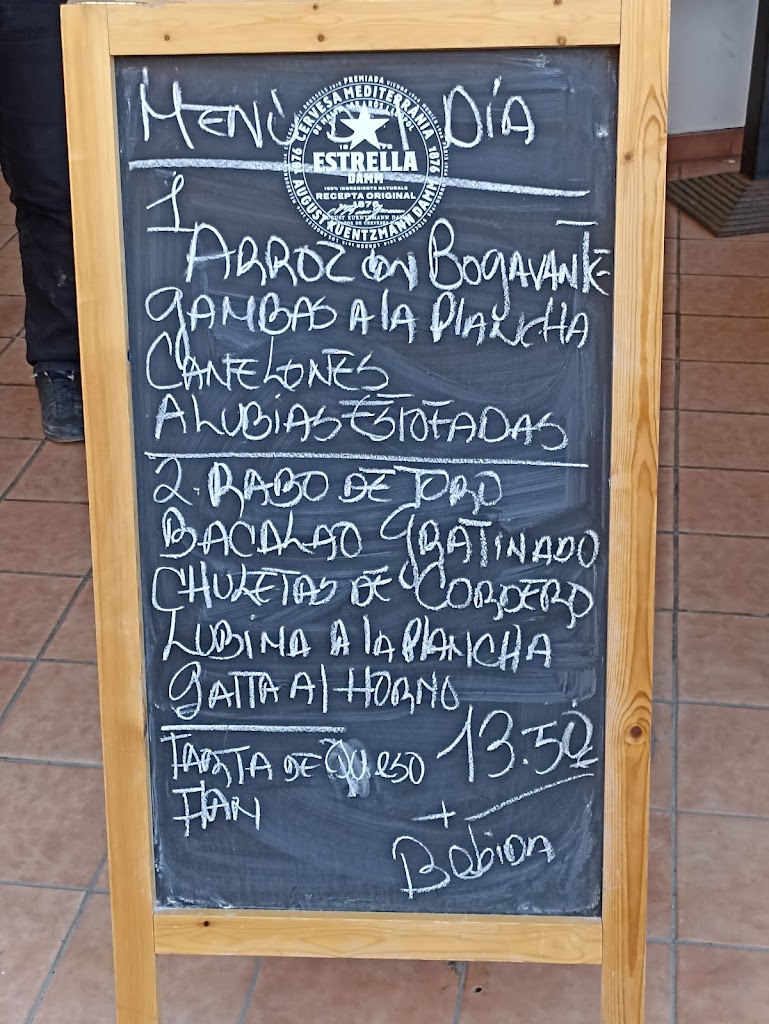 MENÚ DEL DÍA
PREMIADA
CERVESA MEDITERRÀNIA
1876
1876
ESTRELLA
DAMM
100% INGREDIENTS NATURALS
RECEPTA ORIGINAL
1876
AUGUST KUENTZMANN DAMM
1
ARROZ CON BOGAVANTE
GAMBAS A LA PLANCHA
CANELONES
ALUBIAS ESTOFADAS
2. RABO DE TORO
BACALAO GRATINADO
CHULETAS DE CORDERO
LUBINA A LA PLANCHA
GATTA Al HORNO
TARTA DE QUESO 13.50
FLAN
+
Bebida